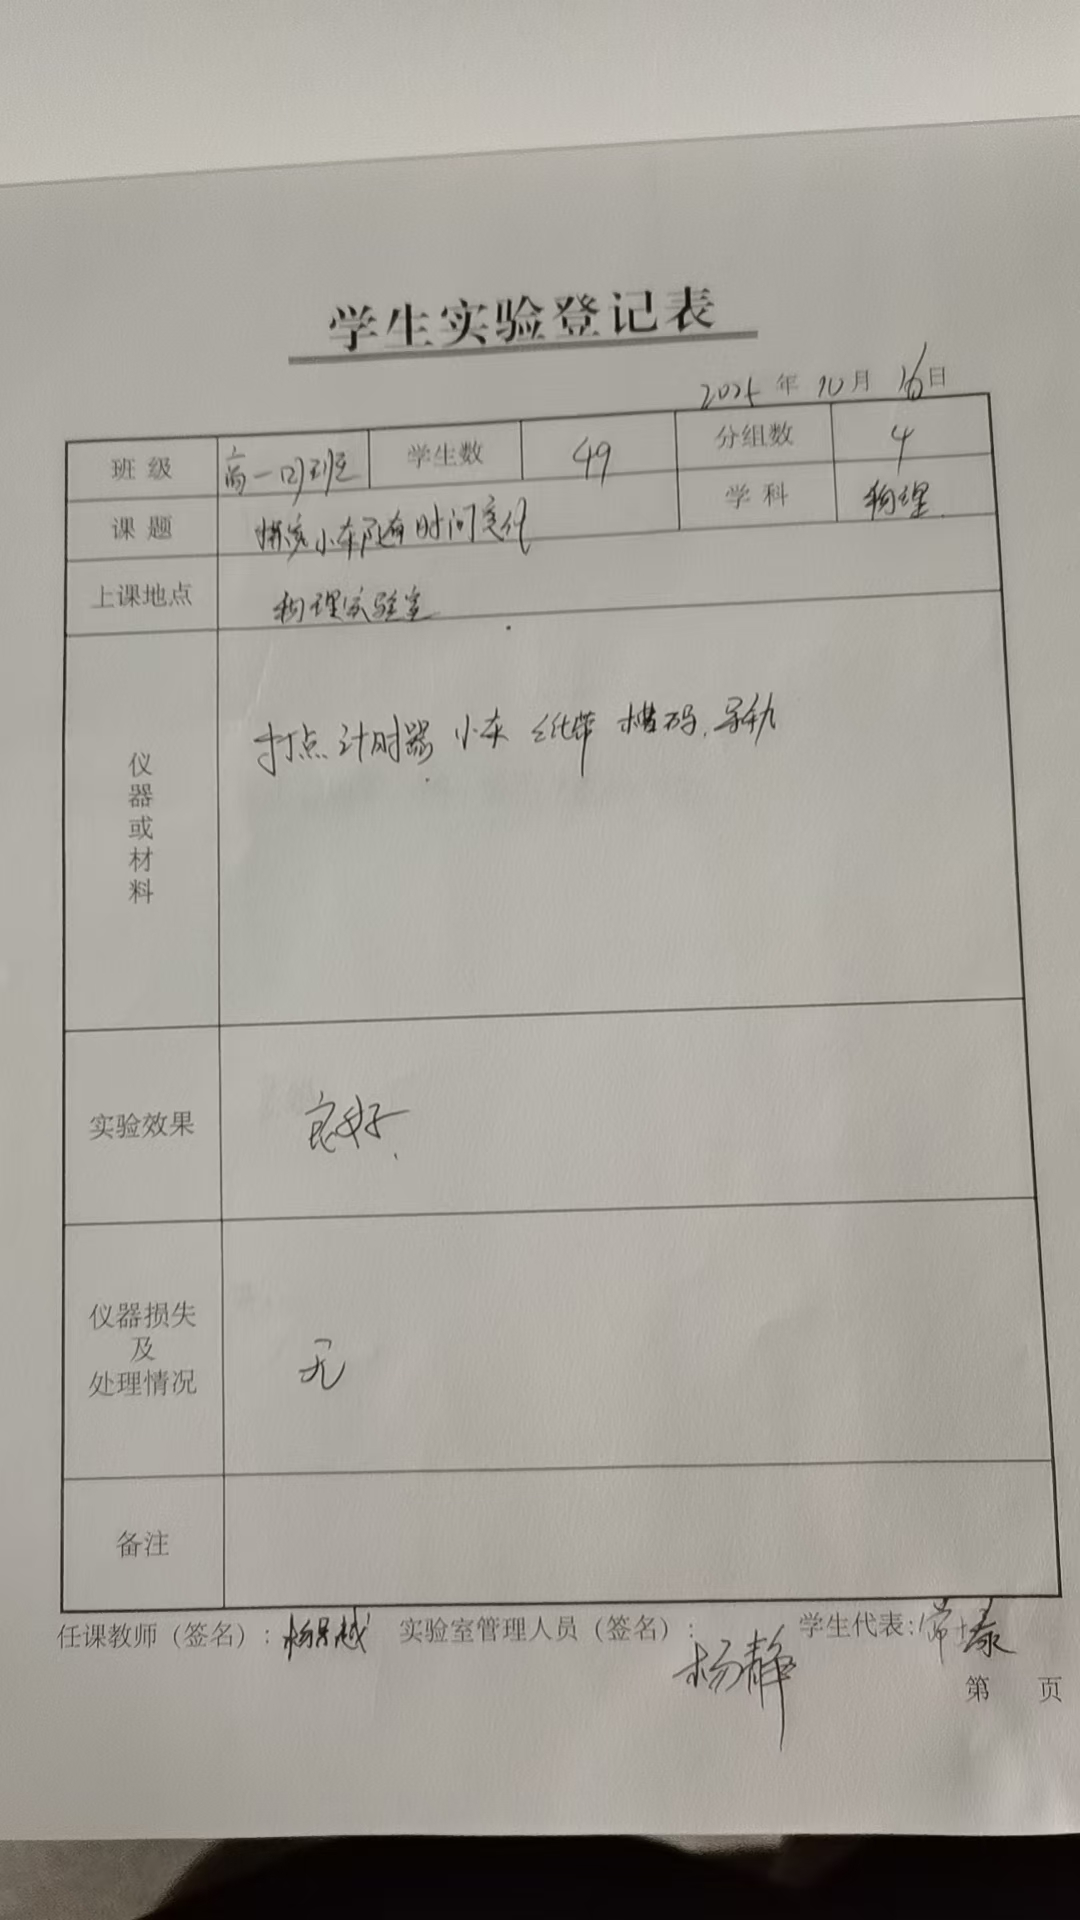 学生实验登记表
2025年10月16日
班级 高一(4)班 学生数 49 分组数 4
课题 探究小车随时间变化 学科 物理
上课地点 物理实验室
仪器或材料 打点计时器 小车 纸带 槽码. 导轨
实验效果 良好.
仪器损失
及
处理情况 无
备注
任课教师（签名）：杨 越 实验室管理人员（签名）：杨静 学生代表：常
第 页